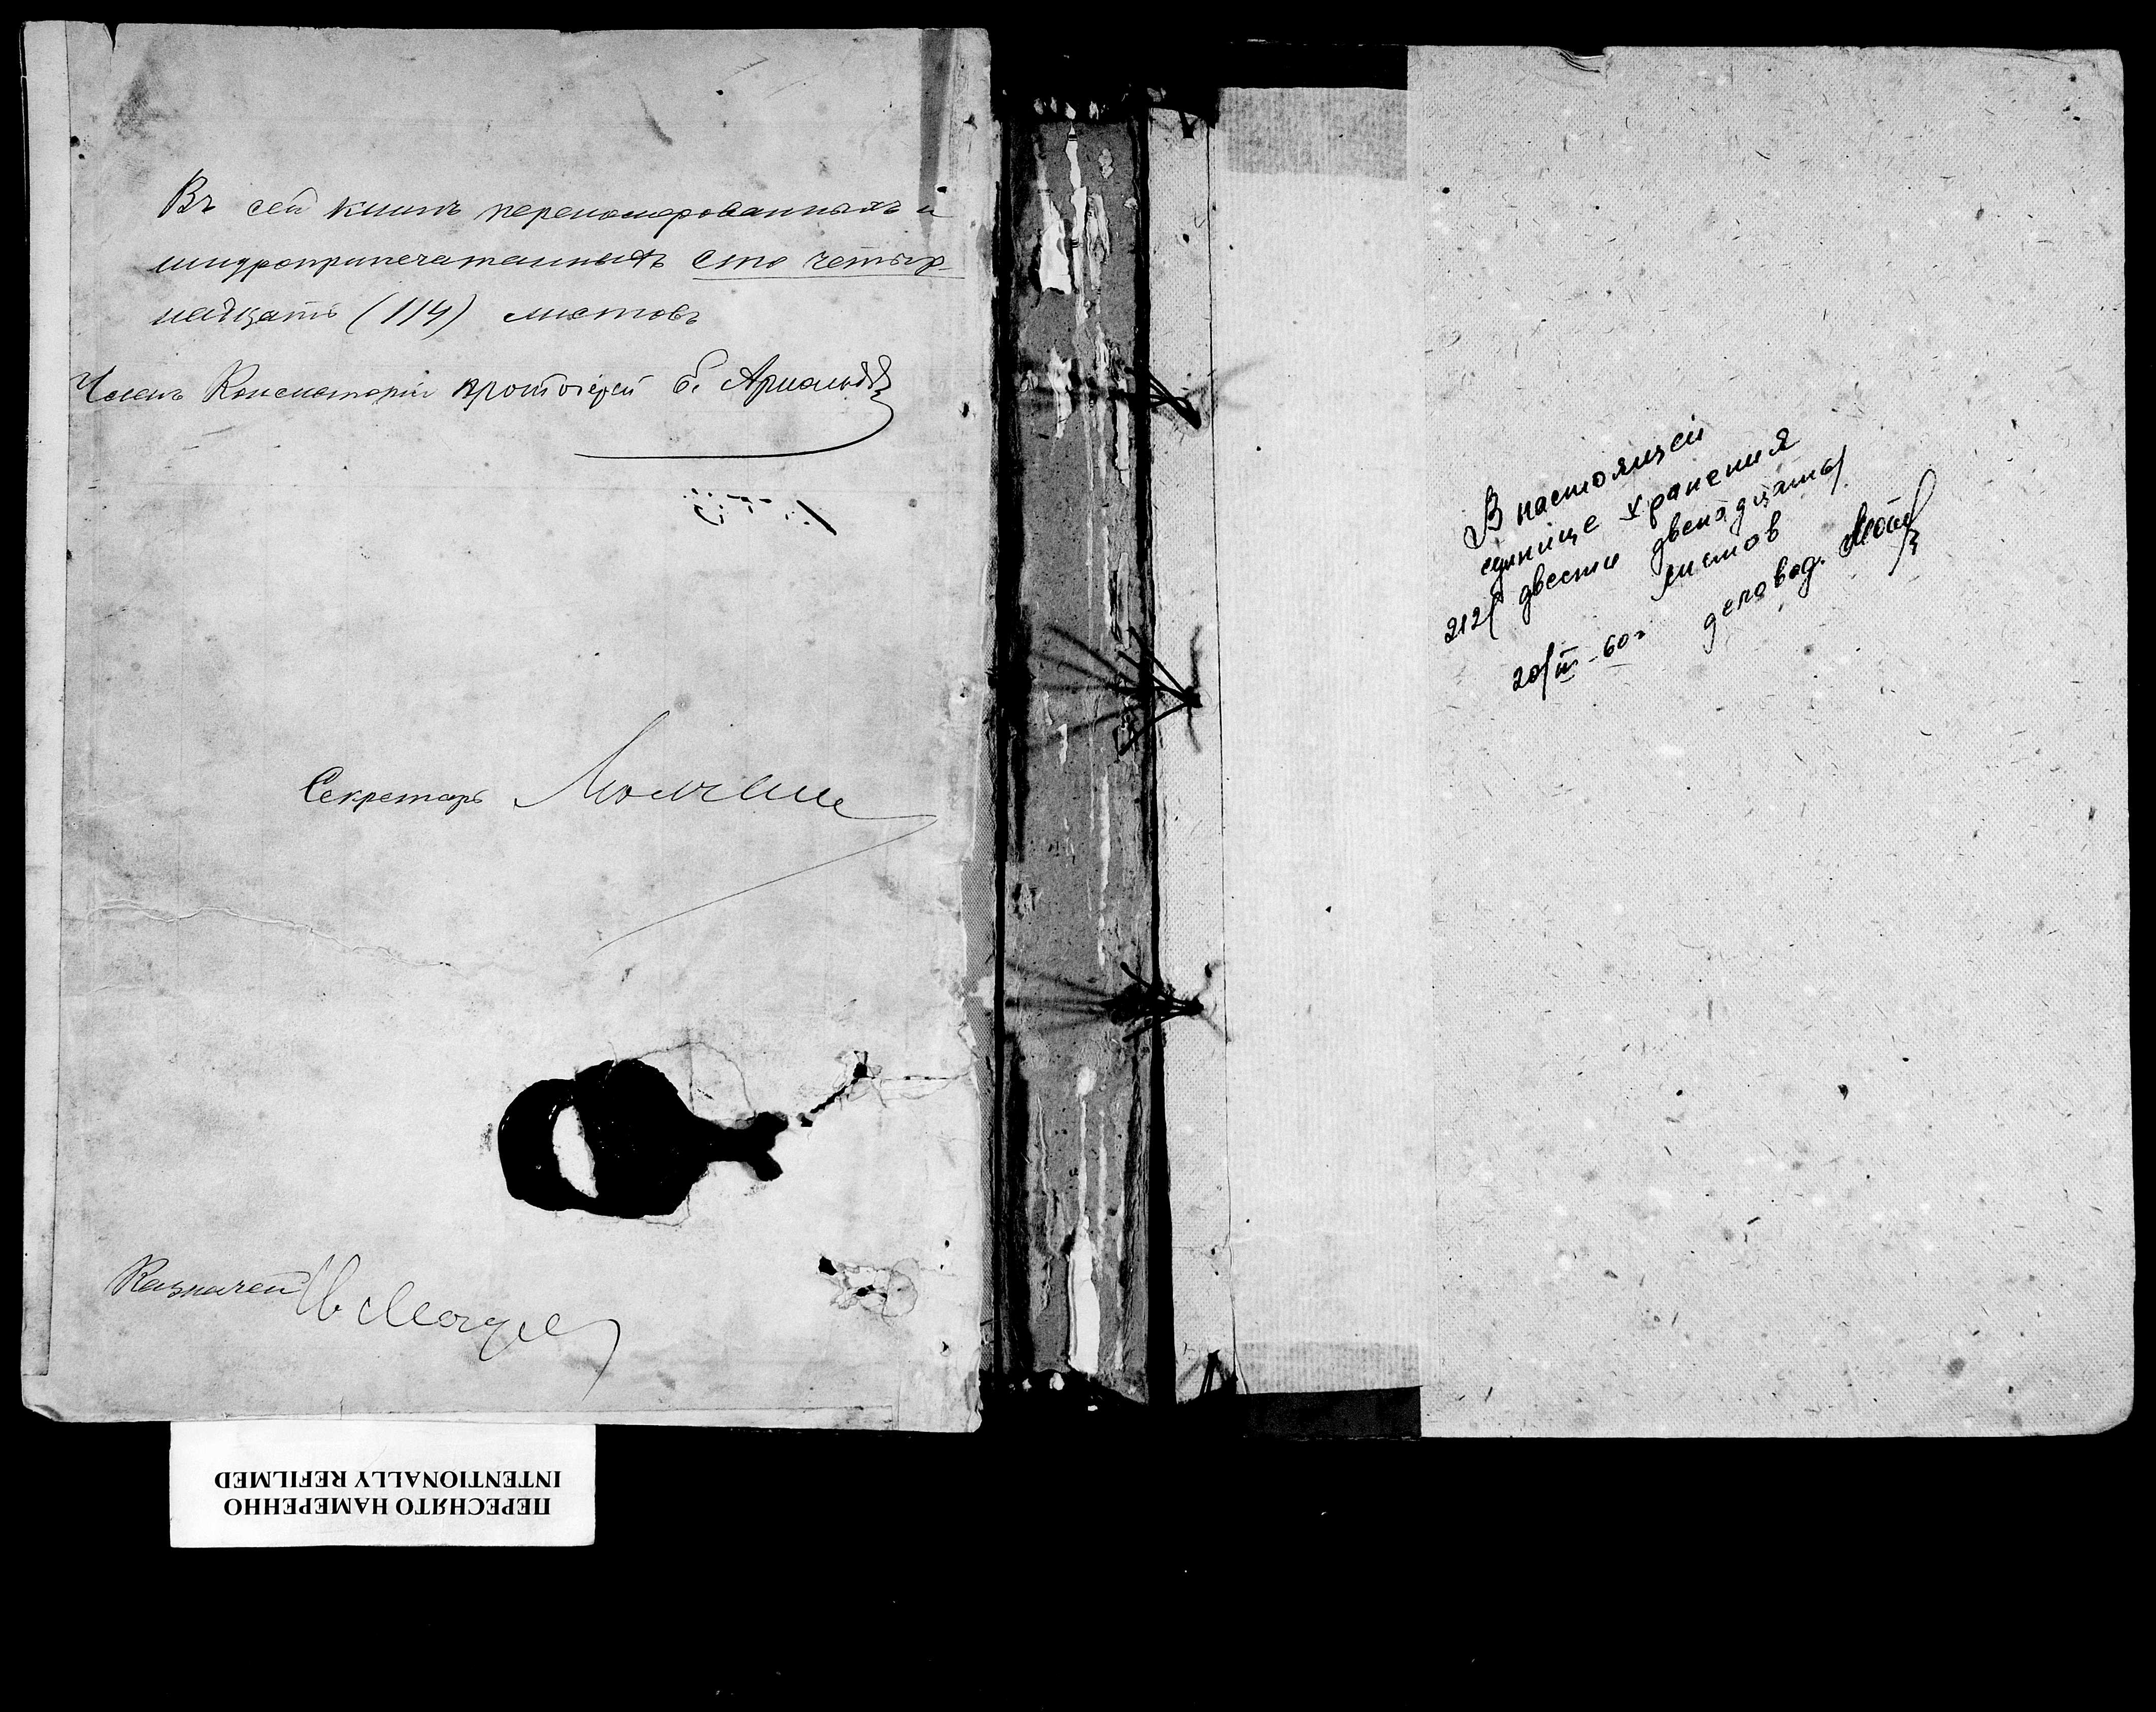 Въ сей книгѣ переномерованныхъ и
шнуроприпечатанныхъ сто четыр-
надцать (114) листовъ
Членъ Консисторіи протоіерей
Секретарь
Казначей
В настоящей
единице хранения
212/ двести двенадцать/
листов
20/III-60г деловод.
ПЕРЕСНЯТО НАМЕРЕННО
INTENTIONALLY REFILMED